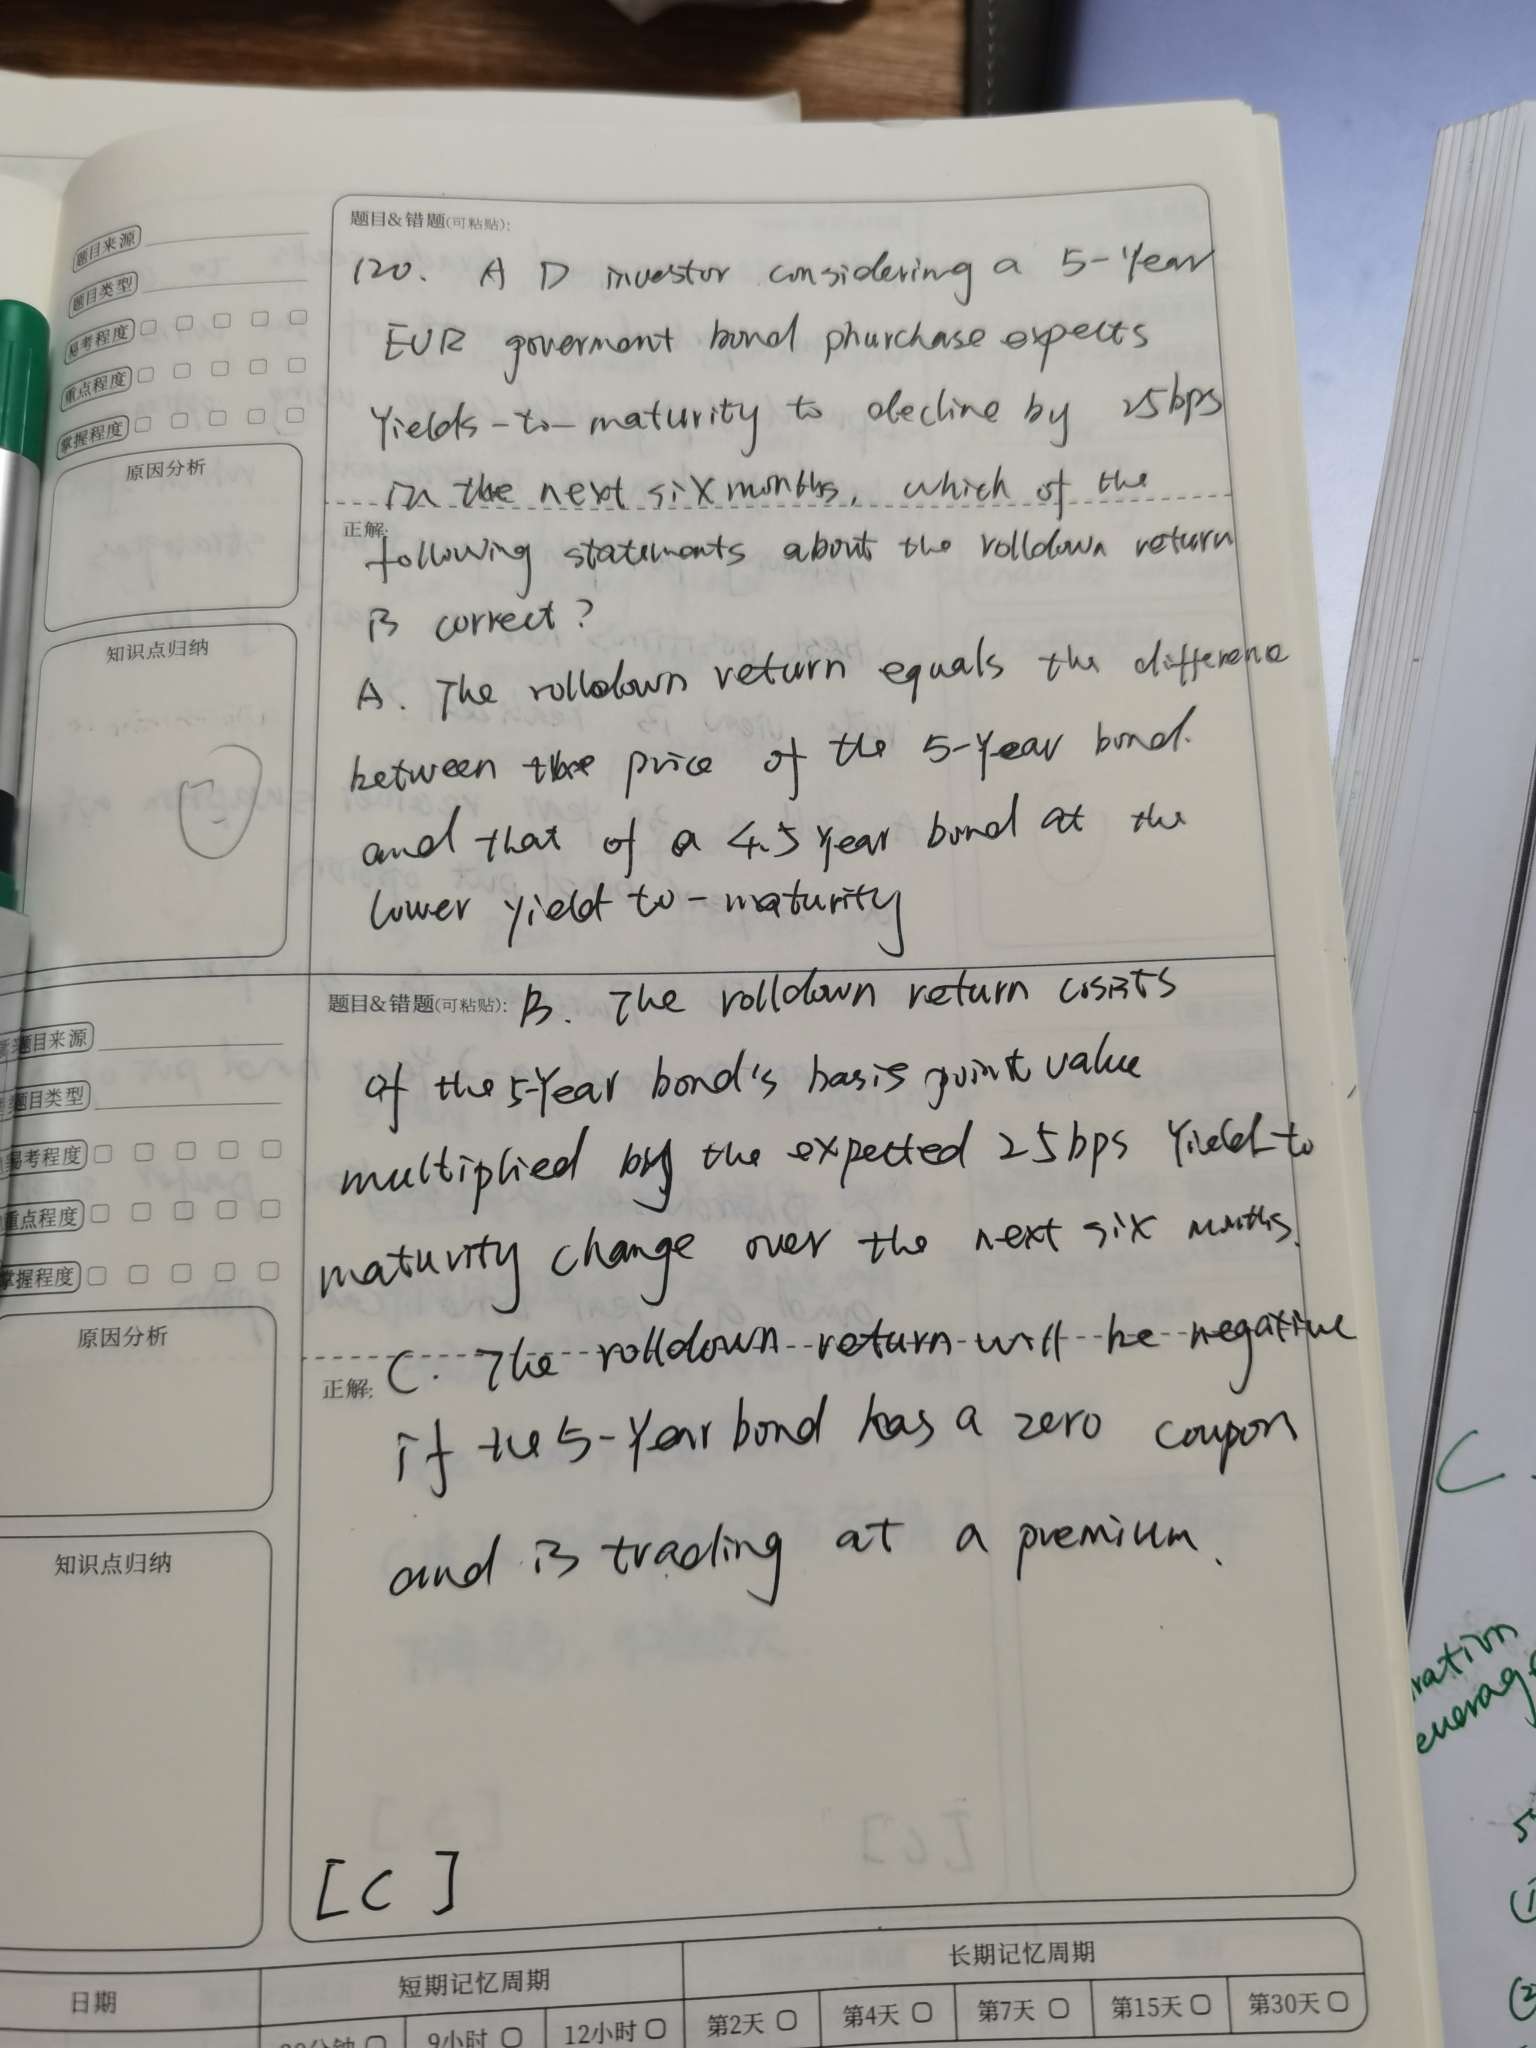 题目&错题(可粘贴):
题目来源
题目类型
易考程度
重点程度
掌握程度
原因分析
知识点归纳
120. A D investor considering a 5-Year
EUR goverment bond phurchase expects
Yields-to-maturity to decline by 25bps
in the next six months, which of the
正解:
following statements about the rolldown return
is correct?
A. The rolldown return equals the difference
between the price of the 5-Year bond.
and that of a 4.5 Year bond at the
lower yield to-maturity
题目&错题(可粘贴): B. The rolldown return cosists
of the 5-Year bond's basis point value
multiplied by the expected 25bps Yield-to
maturity change over the next six months.
C. The rolldown return will be negative
正解:
if the 5-Year bond has a zero coupon
and is trading at a premium.
[C]
题目来源
题目类型
易考程度
重点程度
掌握程度
原因分析
知识点归纳
日期
短期记忆周期
长期记忆周期
9小时
12小时
第2天
第4天
第7天
第15天
第30天
C.